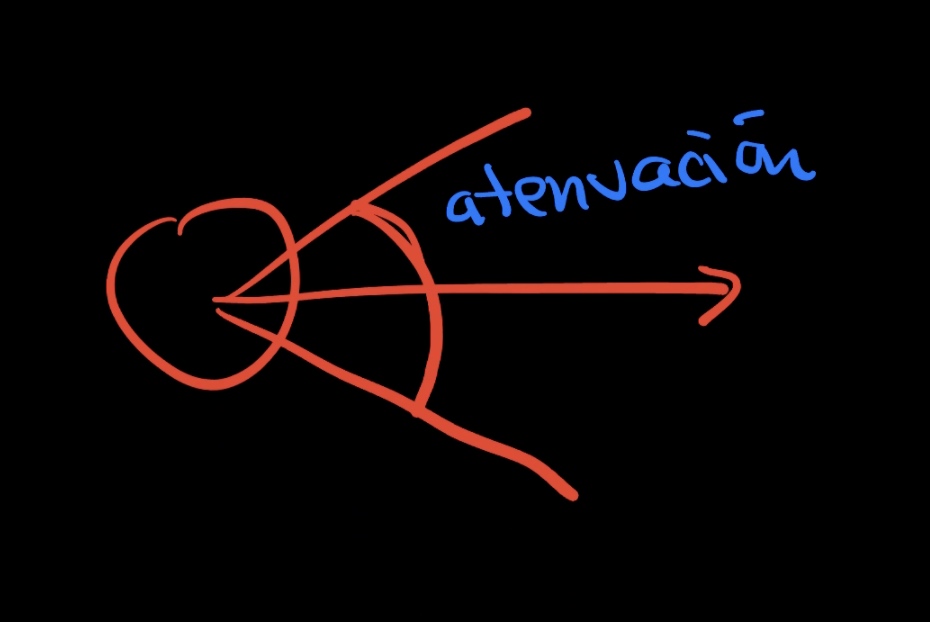 atenuación